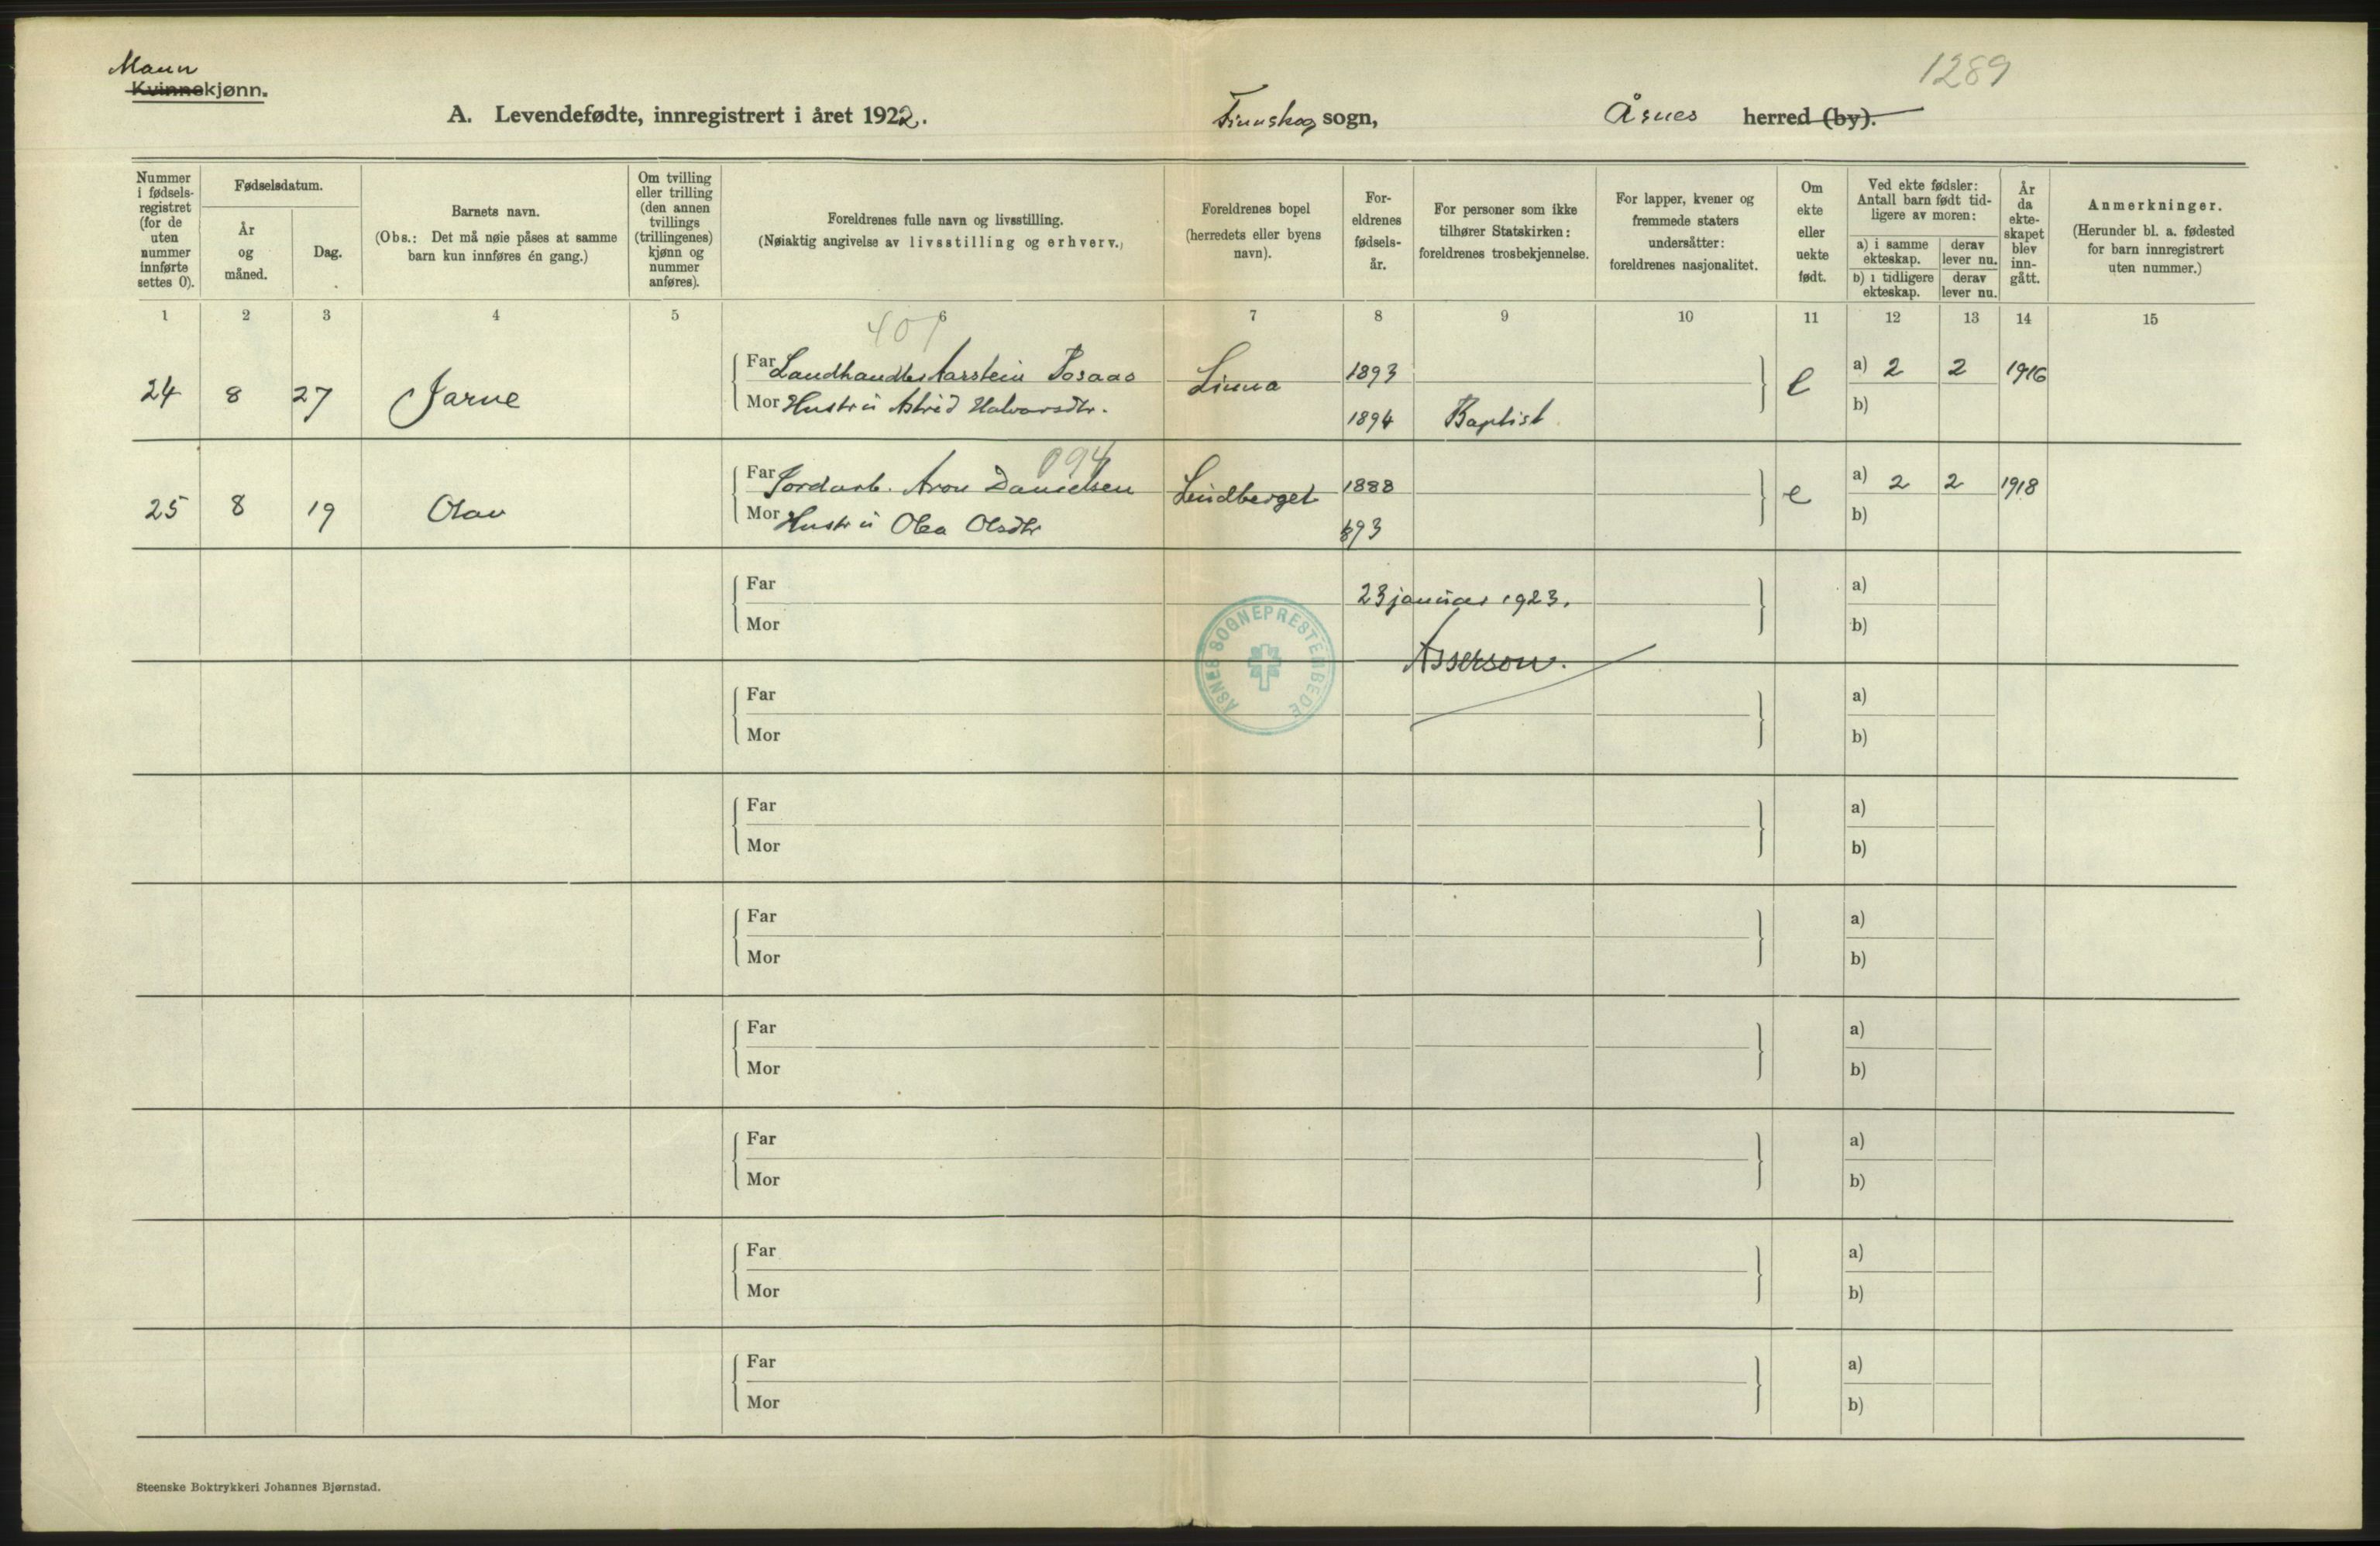 1289
Mann
Kvinnekjønn.
A. Levendefødte, innregistrert i året 1922.
Finnskog sogn,
Åsnes herred (by).
Nummer i fødsels-registret (for de uten nummer innførte settes 0).
Fødselsdatum.
År og måned.
Dag.
Barnets navn.
(Obs.: Det må nøie påses at samme barn kun innføres én gang.)
Om tvilling eller trilling (den annen tvillings (trillingenes) kjønn og nummer anføres).
Foreldrenes fulle navn og livsstilling.
(Nøiaktig angivelse av livsstilling og erhverv.)
Foreldrenes bopel (herredets eller byens navn).
For-eldrenes fødsels-år.
For personer som ikke tilhører Statskirken: foreldrenes trosbekjennelse.
For lapper, kvener og fremmede staters undersåtter: foreldrenes nasjonalitet.
Om ekte eller uekte født.
Ved ekte fødsler: Antall barn født tid-ligere av moren:
a) i samme ekteskap.
derav lever nu.
b) i tidligere ekteskap.
derav lever nu.
År da ekte-skapet blev inn-gått.
Anmerkninger.
(Herunder bl. a. fødested for barn innregistrert uten nummer.)
1 2 3 4 5 6 7 8 9 10 11 12 13 14 15
401
24 8 27 Jarne
Far Landhandler Aarstein Posaas Linna 1893 e a) 2 2 1916
Mor Hustru Astrid Halvorsdtr. 1894 Baptist b)
094
25 8 19 Olav
Far Jordarb. Aron Danielsen Lindberget 1888 e a) 2 2 1918
Mor Hustru Olea Olsdtr 893 b)
Far 23 januar 1923. a)
Mor b)
Asserson.
ÅSNES SOGNEPRESTEMBEDE
Far a)
Mor b)
Far a)
Mor b)
Far a)
Mor b)
Far a)
Mor b)
Far a)
Mor b)
Far a)
Mor b)
Far a)
Mor b)
Steenske Boktrykkeri Johannes Bjørnstad.